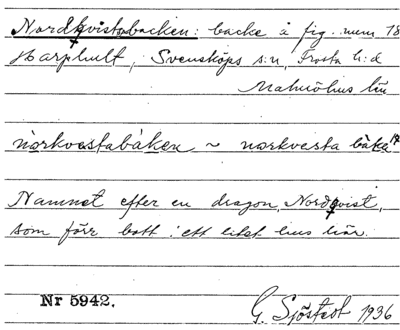 Nordqvistabacken: backe å fig. num 18
Harphult, Svensköps s:n, Frosta h:d
Malmöhus län
norkvestabakən ~ norkvesta bakə
Namnet efter en dragon, Nordqvist,
som förr bott i ett litet hus här.
Nr 5942.
G. Sjöstedt 1936